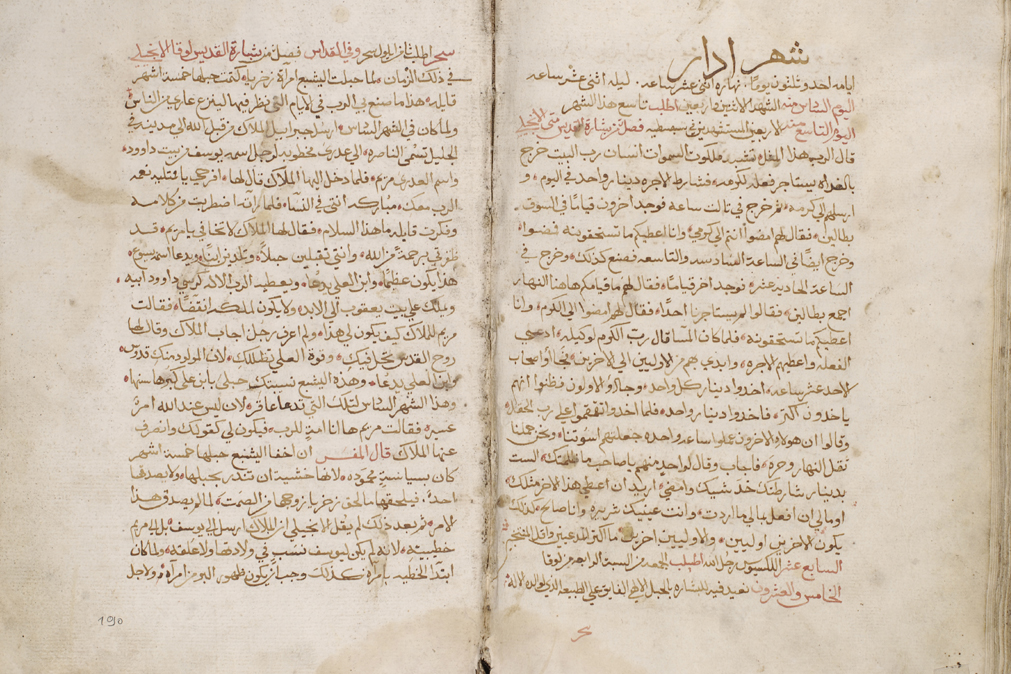 شهر ادار
ايامه احد وثلثون يومًا نهاره اثنى عشر ساعه. ليله اثنى عشر ساعه
اليوم السادس منه الشهدا الاثنين واربعين اطلب تاسع هذا الشهر
اليوم التاسع منه الاربعين المستشهدين في سبسطيه فصل من بشارة القديس متى الانجيلي
قال الرب هذا المثل تشبه ملكوت السموات انسان رب البيت خرج
بالغداة يستاجر فعله لكرمه فشارط الاجره دينار واحد في اليوم و
ارسلهم الى كرمه ثم خرج في تالت ساعه فوجد اخرين قيامًا في السوق
بطالين فقال لهم امضوا انتم الى كرمي وانا اعطيكم ما تستحقونه فمضوا
وخرج ايضًا في الساعة السادسه والتاسعه فصنع كذلك وخرج في
الساعة الحاديه عشره فوجد اخر قيامًا فقال لهم ما قيامكم هاهنا النهار
اجمع بطالين فقالوا لم يستاجرنا احدًا فقال لهم امضوا الى الكرم وانا
اعطيكم ما تستحقونه فلما كان المسا قال رب الكرم لوكيله ادعي
الفعله واعطيهم الاجره وابدي بهم من الاوليين الى الاخرين فجاوا اصحاب
الاحد عشر ساعه اخدوا دينار كل واحد وجاوا الاولون فظنوا انهم
ياخدون اكتر فاخدوا دينار واحد فلما اخدوا تقمقموا على رب الحقله
وقالوا ان هولاء الاخرون عملوا ساعه واحده جعلتهم اسوتنا ونحن حملنا
تقل النهار وحره فاجاب وقال لواحد منهم يا صاحب ما ظلمتك الست
بدينار شارطتك خد شيك وامضي اريد ان اعطي هذا الاخر متلك
او ما لي ان افعل بمالي ما اردت وانت عينيك شريره وانا صالح كذلك
يكون الاخرين اوليين والاوليين اخرين ما اكتر المدعيين واقل المنتخبين
السابع عشر الكسيوس رجل الله اطلب الجمعه من السبة الرابعه من لوقا
الخامس والعشرون نعيد فيه للبشاره بالحبل الالاهي الفايق على الطبيعه الدي لوالدة الاله
سحر اطلب ثامن ايلول سحر وفي القداس فصل من بشارة القديس لوقا الانجيلي
في ذلك الزمان لما حبلت اليشبع امراة زخريا كتمت حبلها خمسة اشهر
قايله هذا ما صنع بي الرب في الايام التي نظر فيها لينزع عاري من الناس
ولما كان في الشهر السادس ارسل جبراييل الملاك من قبل الله الى مدينه في
الجليل تسمى الناصره الى عدرى مخطوبه لرجل اسمه يوسف من بيت داوود
واسم العدرى مريم فلما دخل اليها الملاك قال لها افرحي يا ممتليه نعمه
الرب معك مباركه انتي في النسا فلما راته اضطربت من كلامه
وفكرت قايله ما هذا السلام فقال لها الملاك لا تخافي يا مريم قد
ظفرتي برحمة من الله وانتي تقبلين حبلاً وتلدين ابنًا ويدعا اسمه يسوع
هذا يكون عظيمًا وابن العلي يدعا ويعطيه الرب الاله كرسي داوود ابيه
ويملك على بيت يعقوب الى الابد ولا يكون لملكه انقضا فقالت
مريم للملاك كيف يكون لي هذا ولم اعرف رجل اجاب الملاك وقال لها
روح القدس تحل فيك وقوة العلي تظللك لان المولود منك قدوس
وابن العلي يدعا وهذه اليشبع نسيبتك حبلى بابن على كبر سنها
وهذا الشهر السادس لتلك التي تدعا عاقره لان ليس عند الله امرٌ
عسير فقالت مريم ها انا امة للرب فيكون لي كقولك وانصرف
عنها الملاك قال المفسر ان اخفا اليشبع حبلها خمسة اشهر
كان بسياسة محموده لانها خشيت ان تندر بحبلها ولا يصدقها
احد فيلحقها ما لحق زخريا زوجها من الصمت لما لم يصدق هذا
الامر ثم بعد ذلك لم يقل الانجيلي ان الملاك ارسل الى يوسف بل الى مريم
خطيبته لانه لم يكن ليوسف نسب في ولادتها ولا علقه ولما كان
ابتدا الخطيه بامراة كذلك وجب ان يكون ظهور البر من امراة ولاجل
190